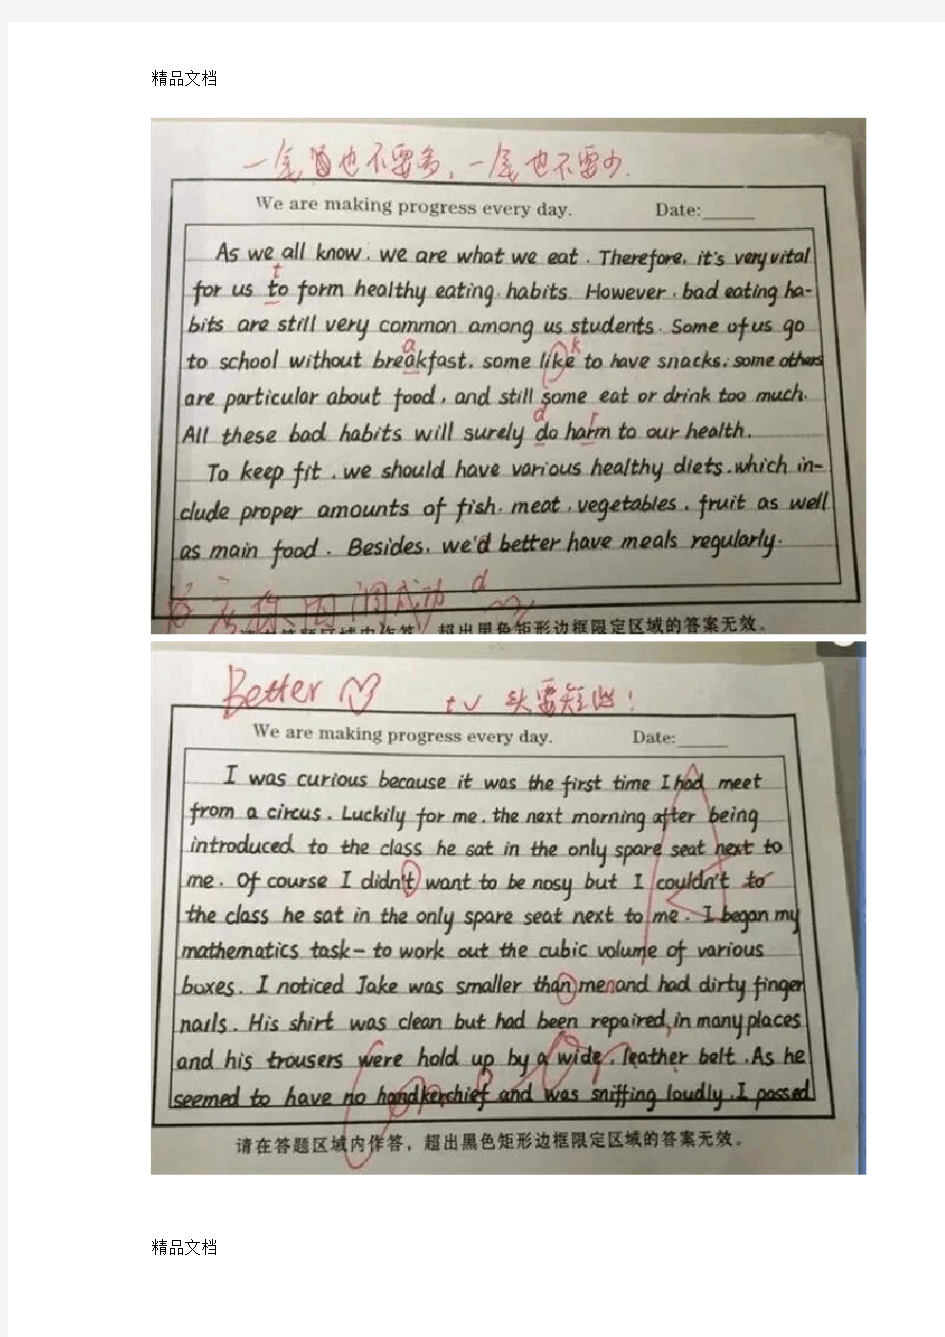 精品文档
一笔也不要多，一笔也不要少.
We are making progress every day. Date:
As we all know, we are what we eat. Therefore, it's very vital
t
for us to form healthy eating habits. However, bad eating ha-
bits are still very common among us students. Some of us go
a k
to school without breakfast, some like to have snacks, some others
are particular about food, and still some eat or drink too much.
d r
All these bad habits will surely do harm to our health.
To keep fit, we should have various healthy diets, which in-
clude proper amounts of fish, meat, vegetables, fruit as well
as main food. Besides, we'd better have meals regularly.
成功 d
超出黑色矩形边框限定区域的答案无效。
Better tv 头要短些!
We are making progress every day. Date:
I was curious because it was the first time I had meet
from a circus. Luckily for me, the next morning after being
introduced to the class he sat in the only spare seat next to
me. Of course I didn't want to be nosy but I couldn't to
the class he sat in the only spare seat next to me. I began my
mathematics task - to work out the cubic volume of various
boxes. I noticed Jake was smaller than men and had dirty finger
nails. His shirt was clean but had been repaired, in many places
and his trousers were hold up by a wide, leather belt. As he
seemed to have no handkerchief and was sniffing loudly, I passed
请在答题区域内作答，超出黑色矩形边框限定区域的答案无效。
精品文档